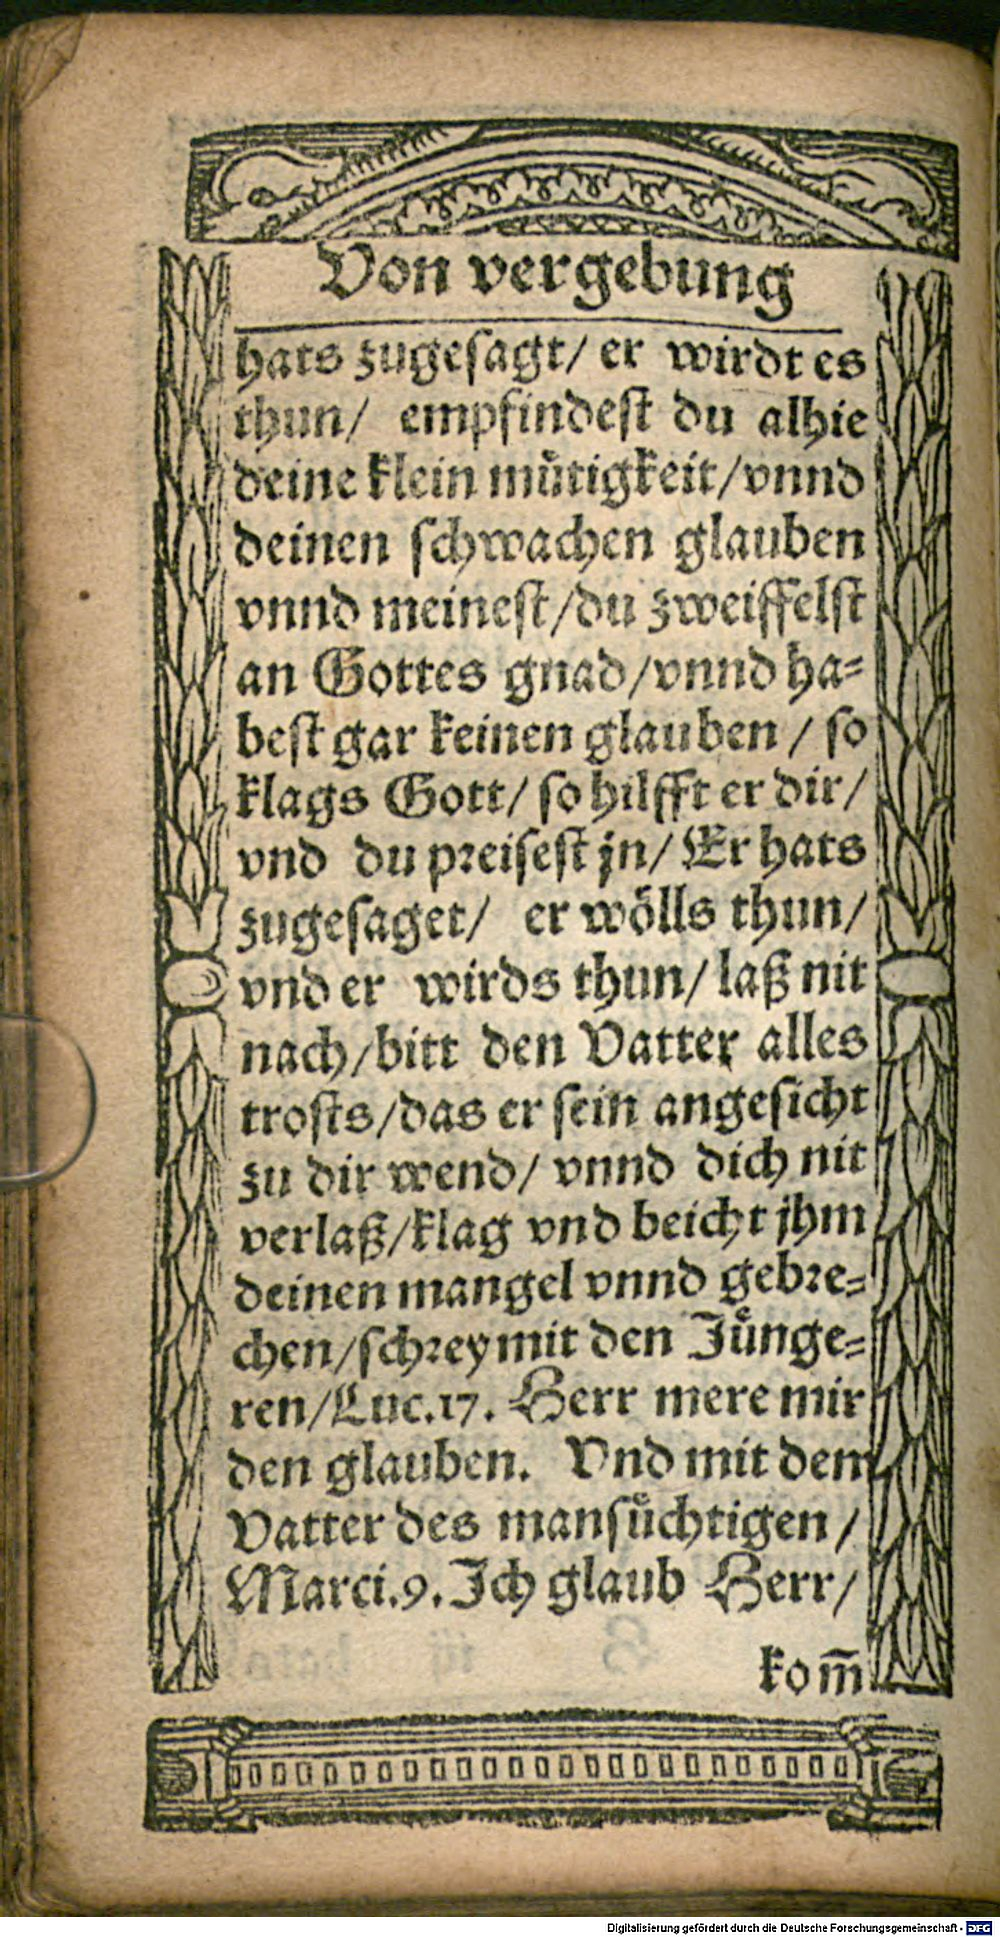 Von vergebung
hats zugesagt/ er wirdt es
thun/ empfindest du alhie
deine klein mütigkeit/vnnd
deinen schwachen glauben
vnnd meinest/du zweiffelst
an Gottes gnad/vnnd ha-
best gar keinen glauben / so
klags Gott/ so hilfft er dir/
vnd du preisest jn/ Er hats
zugesaget/ er wölls thun/
vnd er wirds thun/ laß nit
nach/bitt den Vatter alles
trosts/das er sein angesicht
zu dir wend/ vnnd dich nit
verlaß/klag vnd beicht jhm
deinen mangel vnnd gebre-
chen/schrey mit den Jünge-
ren/Luc.17. Herr mere mir
den glauben. Vnd mit dem
Vatter des mansüchtigen/
Marci.9. Ich glaub Herr/
kom̃
Digitalisierung gefördert durch die Deutsche Forschungsgemeinschaft - DFG